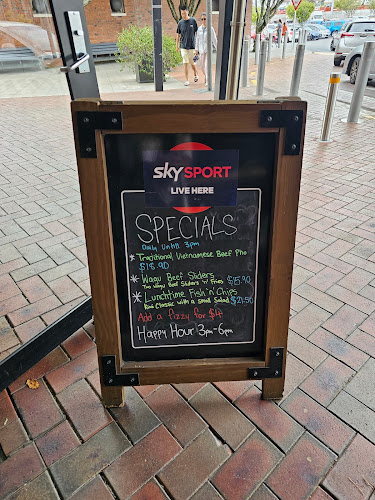 sky SPORT
LIVE HERE
SPECIALS
Daily Until 3pm
* Traditional Vietnamese Beef Pho
$18.90
* Wagu Beef Sliders $15.90
Two Wagu Beef Sliders 'n' Fries
* Lunchtime Fish 'n' Chips $21.50
Kiwi Classic with a small Salad
Add a fizzy for $4
Happy Hour 3pm-6pm